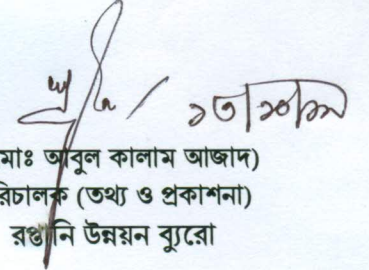 মাঃ আবুল কালাম আজাদ)
রিচালক (তথ্য ও প্রকাশনা)
রপ্তানি উন্নয়ন ব্যুরো